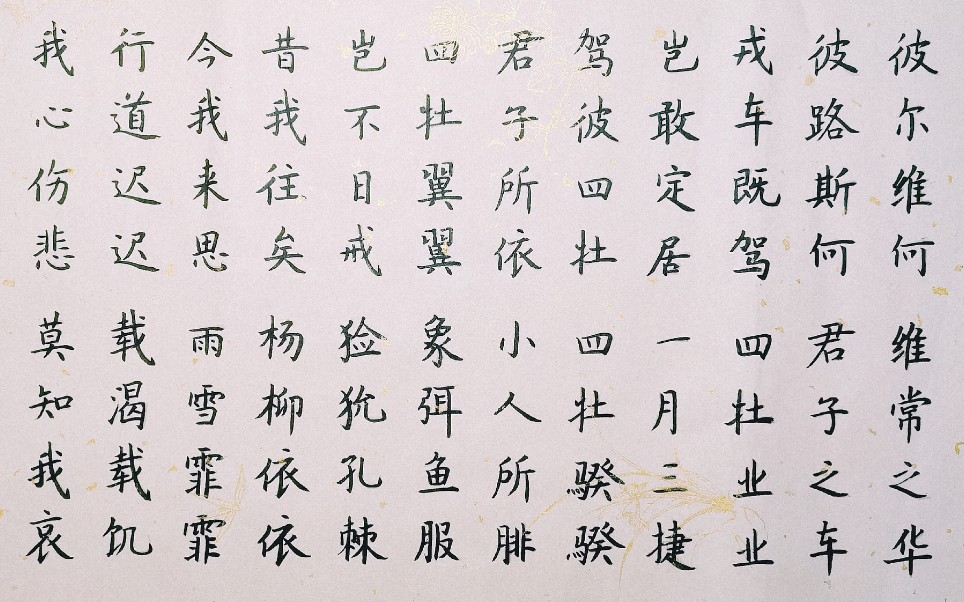 彼尔维何 维常之华
彼路斯何 君子之车
戎车既驾 四牡业业
岂敢定居 一月三捷
驾彼四牡 四牡騤騤
君子所依 小人所腓
四牡翼翼 象弭鱼服
岂不日戒 猃狁孔棘
昔我往矣 杨柳依依
今我来思 雨雪霏霏
行道迟迟 载渴载饥
我心伤悲 莫知我哀